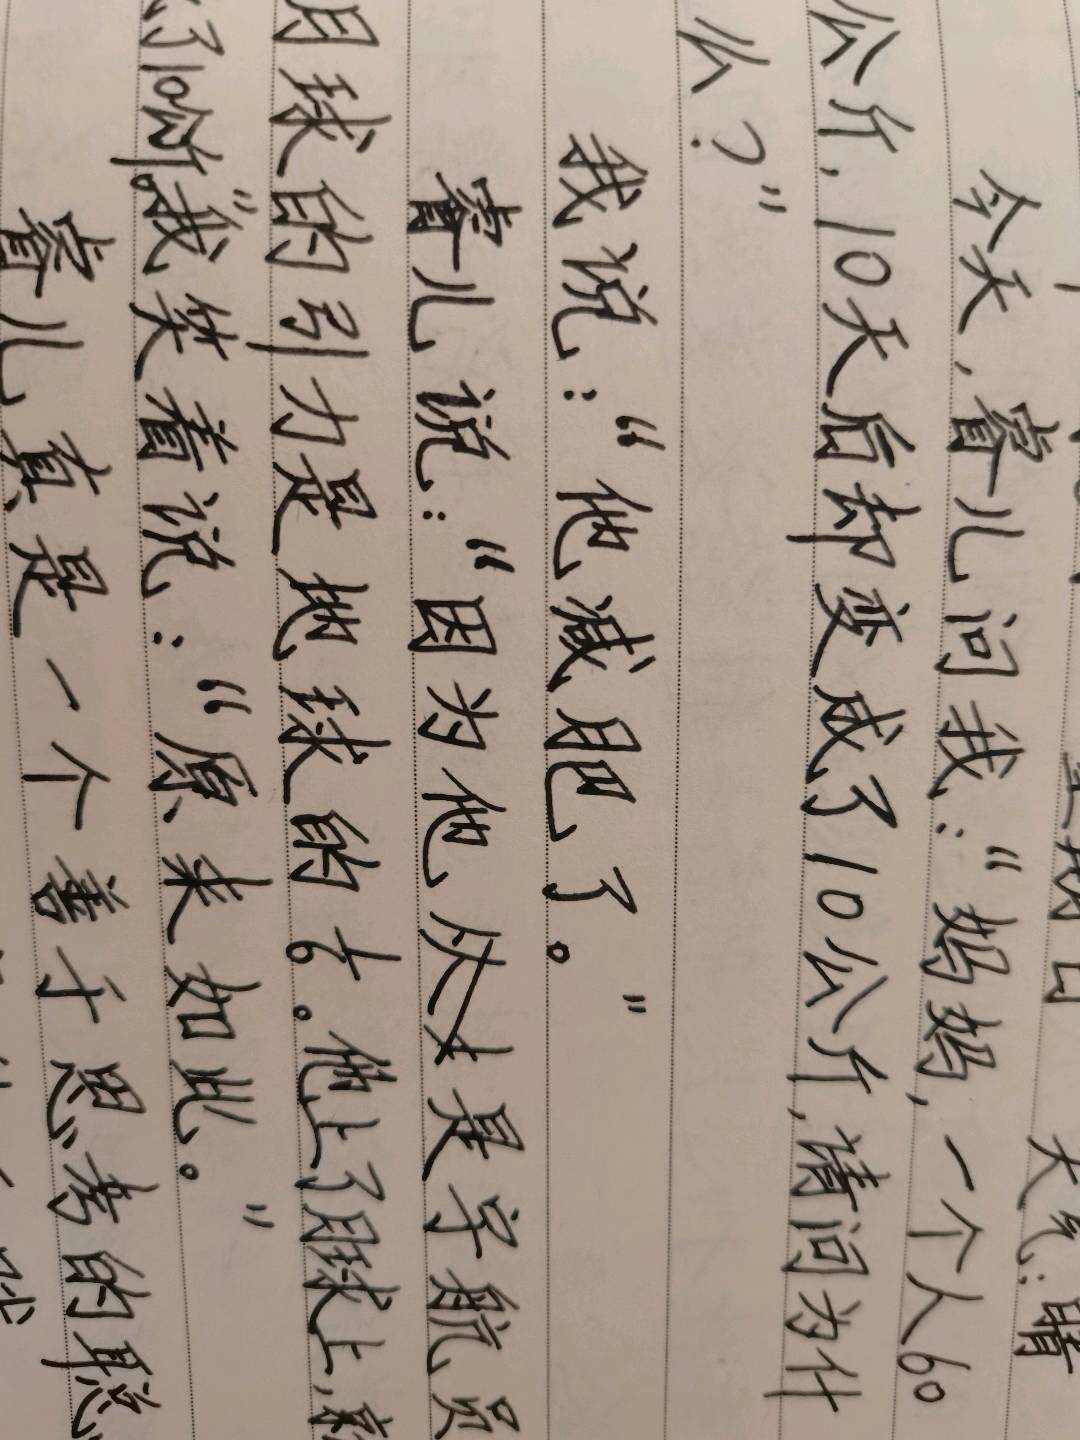 星期日 天气:晴
今天,睿儿问我:“妈妈,一个人60
公斤,10天后却变成了10公斤,请问为什
么?”
我说:“他减肥了。”
睿儿说:“因为他是宇航员
月球的引力是地球的1/6。他上了月球上,就
成了10公斤。”我笑着说:“原来如此。”
睿儿真是一个善于思考的聪